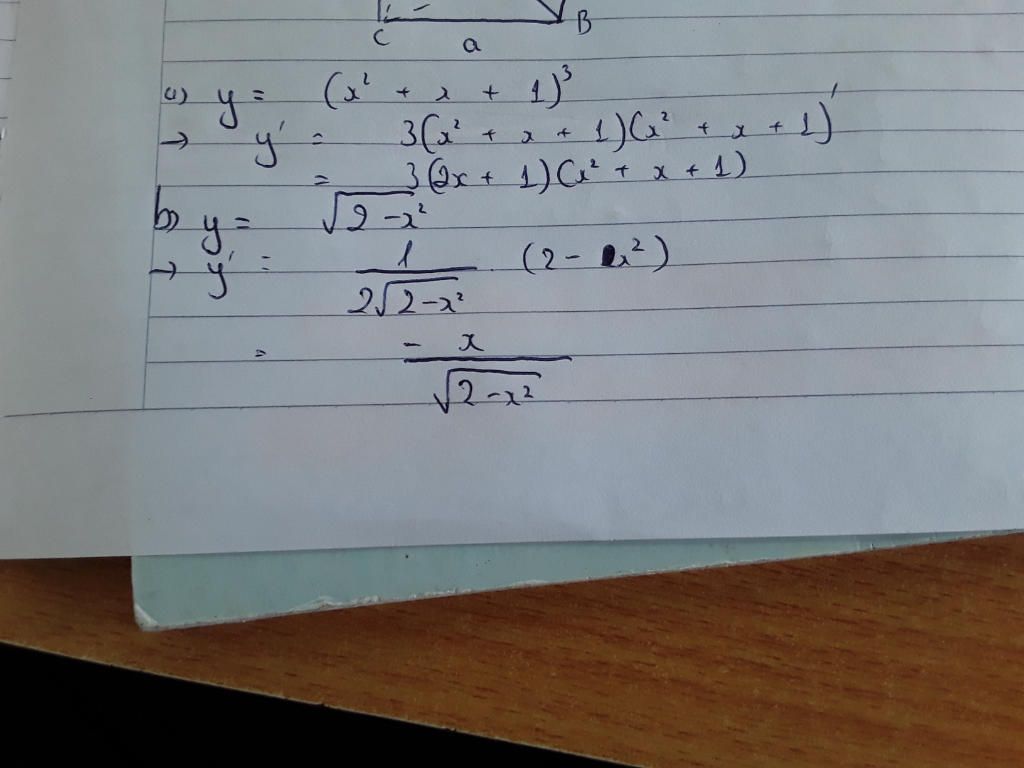 C a B
a) y = (x² + x + 1)³
→ y' = 3(x² + x + 1)(x² + x + 1)'
= 3(2x + 1)(x² + x + 1)
b) y = √(2 - x²)
→ y' = 1/(2√(2 - x²)) . (2 - x²)
= - x/√(2 - x²)